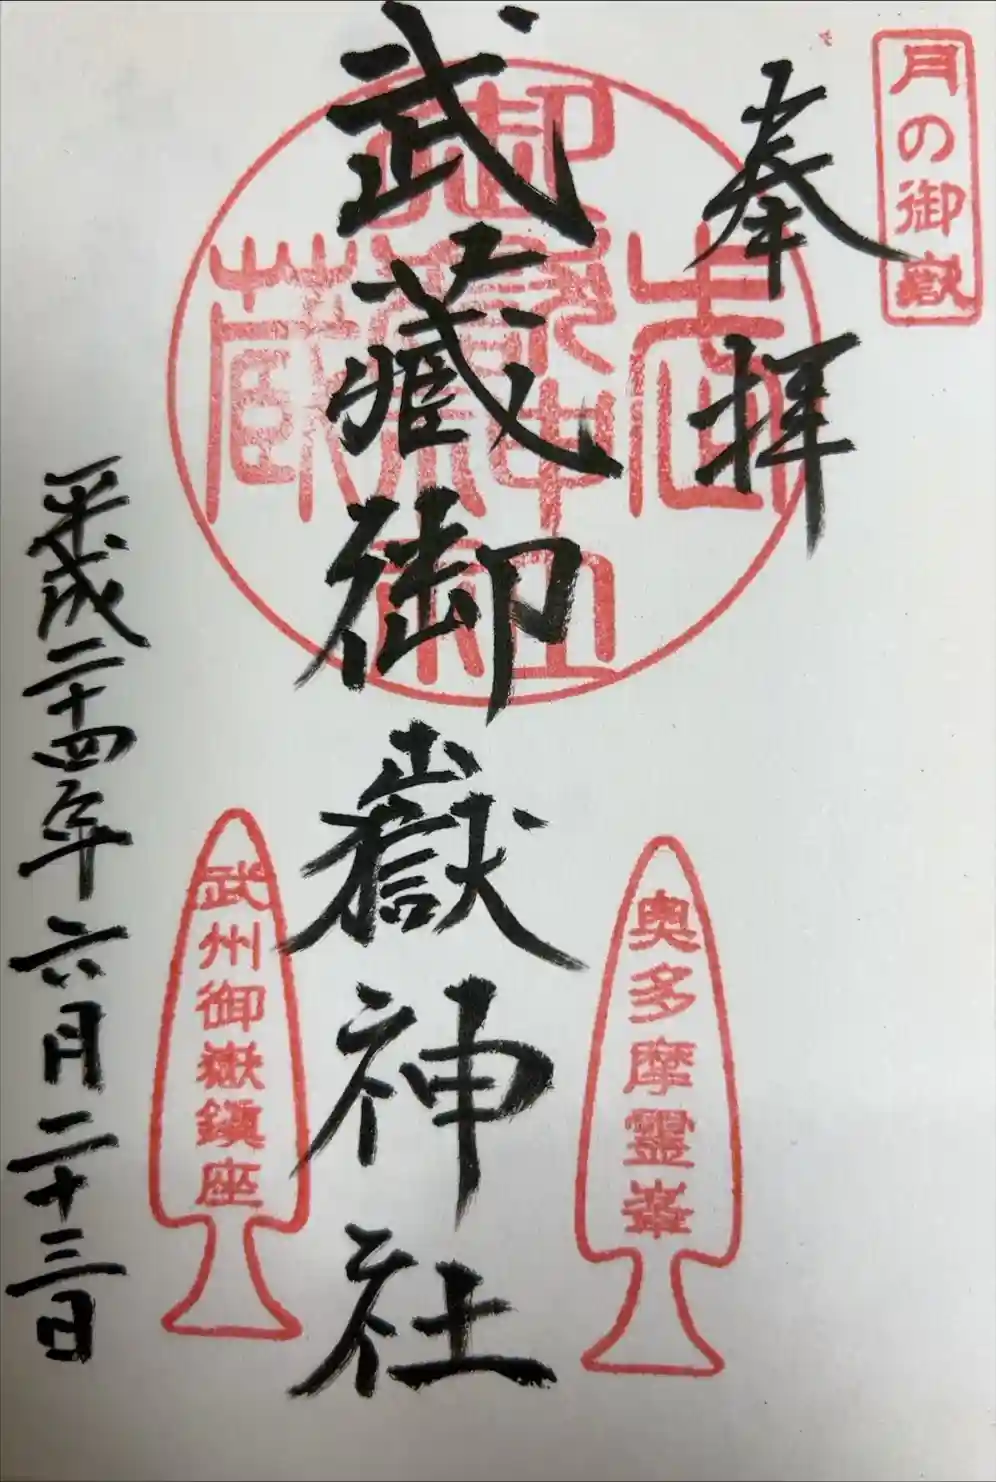 月の御嶽
奉拝
武蔵御嶽神社
奥多摩霊峯
武州御嶽鎮座
平成二十四年六月二十三日